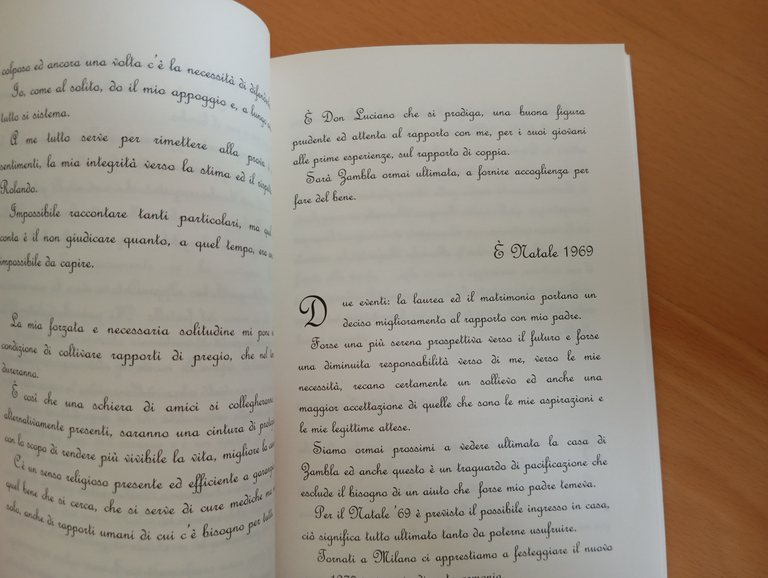 colposo ed ancora una volta c'è la necessità di
Io, come al solito, do il mio appoggio e, a
tutto si sistema.
A me tutto serve per rimettere alla prova i
sentimenti, la mia integrità verso la stima ed il
Rolando.
Impossibile raccontare tanti particolari, ma
conta è il non giudicare quanto, a quel tempo, era
impossibile da capire.
La mia forzata e necessaria solitudine mi
condizione di coltivare rapporti di pregio, che nel
dureranno.
È così che una schiera di amici si
alternativamente presenti, saranno una cintura di
con lo scopo di rendere più vivibile la vita, migliore la
C'è un senso religioso presente ed efficiente a
quel bene che si cerca, che si serve di cure mediche ma
solo, anche di rapporti umani di cui c'è bisogno per
È Don Luciano che si prodiga, una buona figura
prudente ed attenta al rapporto con me, per i suoi giovani
alle prime esperienze, sul rapporto di coppia.
Sarà Zambla ormai ultimata, a fornire accoglienza per
fare del bene.
È Natale 1969
Due eventi: la laurea ed il matrimonio portano un
deciso miglioramento al rapporto con mio padre.
Forse una più serena prospettiva verso il futuro e forse
una diminuita responsabilità verso di me, verso le mie
necessità, recano certamente un sollievo ed anche una
maggior accettazione di quelle che sono le mie aspirazioni e
le mie legittime attese.
Siamo ormai prossimi a vedere ultimata la casa di
Zambla ed anche questo è un traguardo di pacificazione che
esclude il bisogno di un aiuto che forse mio padre temeva.
Per il Natale '69 è previsto il possibile ingresso in casa,
ciò significa tutto ultimato tanto da poterne usufruire.
Tornati a Milano ci apprestiamo a festeggiare il nuovo